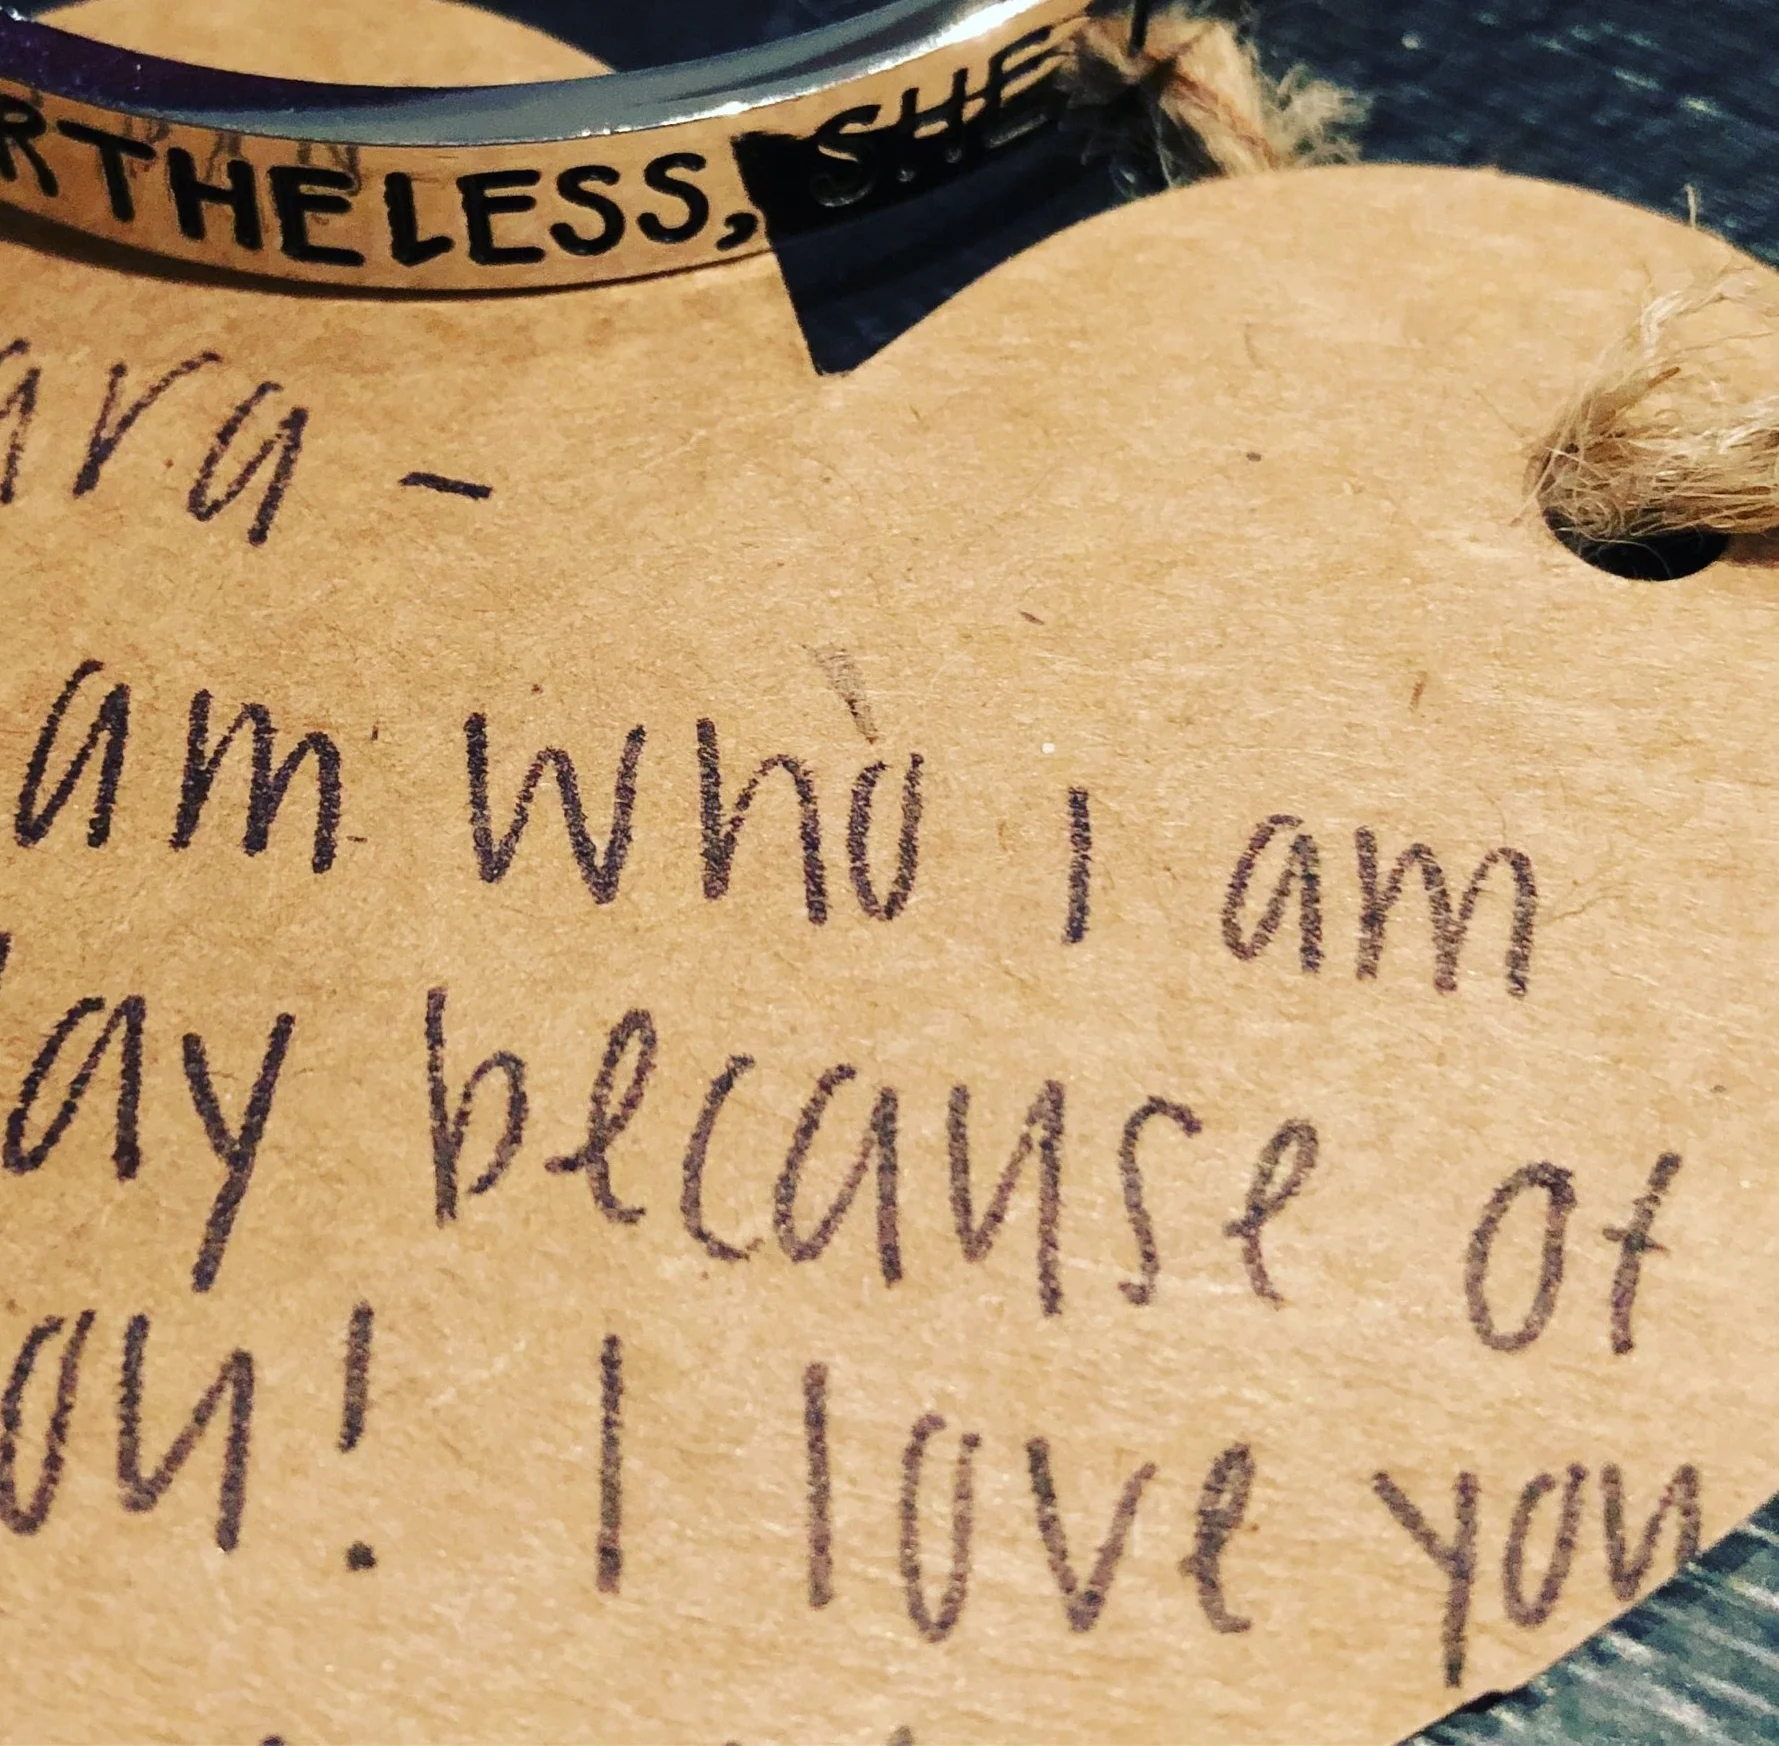 RTHELESS, SHE
ara -
am who i am
day because of
you! I love you